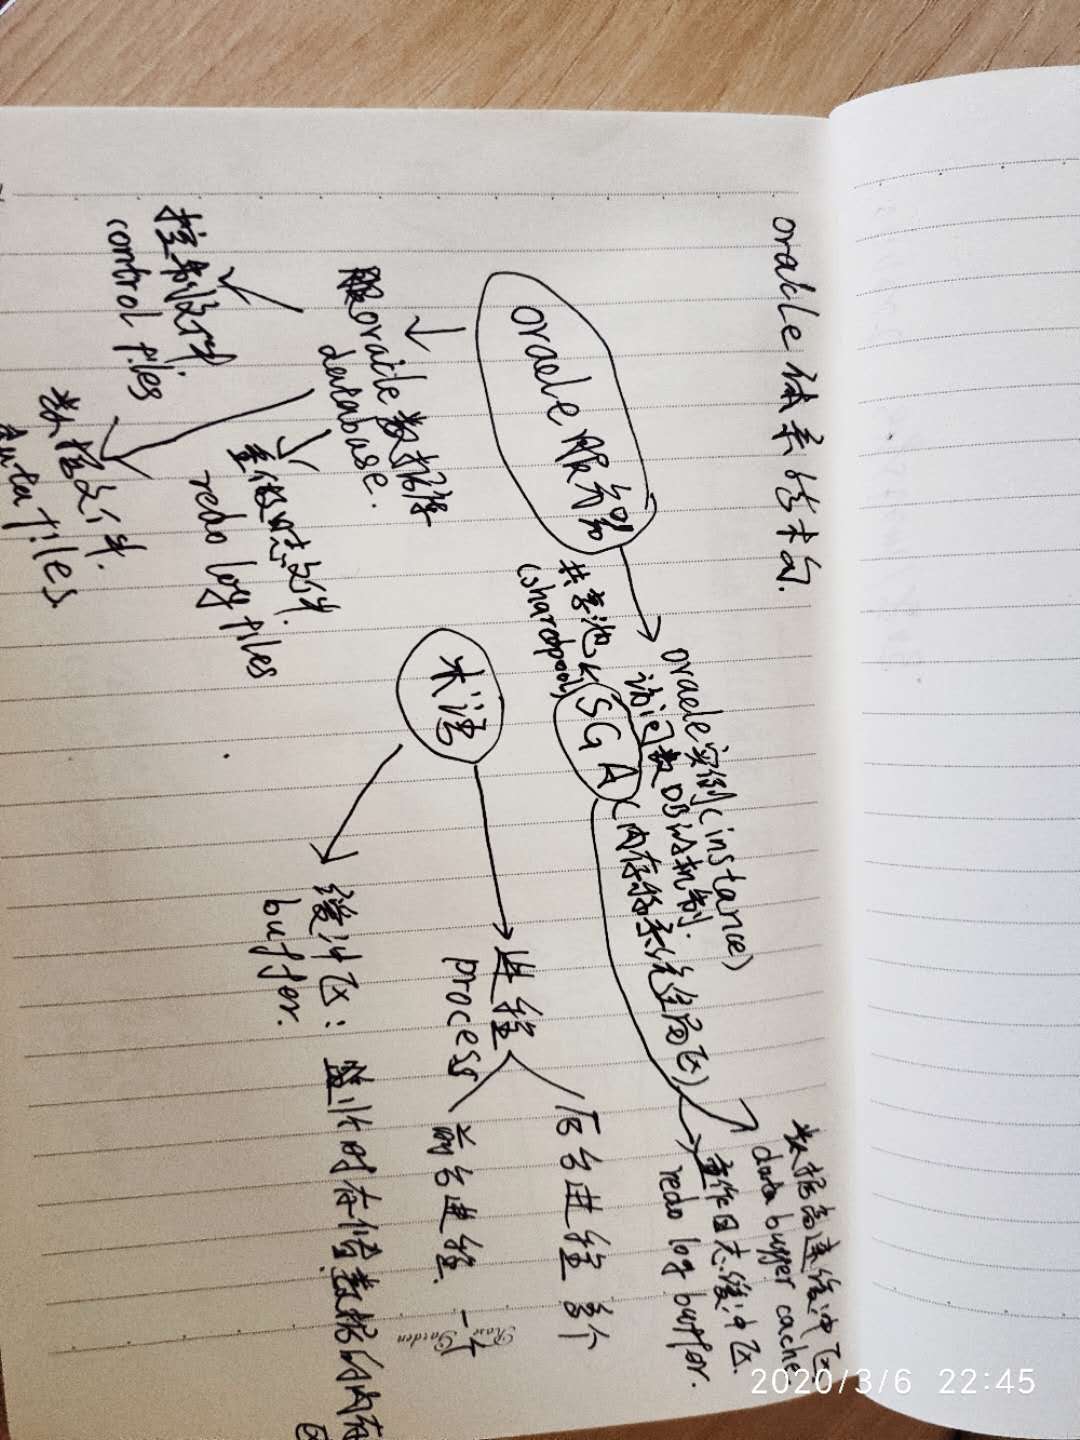 oracle 体系结构.
oracle 服务器
oracle实例(instance)
访问数DB的机制.
共享池
(sharedpool)
SGA(内存称系统全局区)
数据高速缓冲区
data buffer cache
重作日志缓冲区.
redo log buffor.
oracle数据库
database.
控制文件
control files
重做日志文件.
redo log files
数据文件.
data files
术语
进程
process
后台进程 多个
前台进程. 一个
缓冲区: 临时存储数据的内存
区
buffor.
Rose
Garden
2020/3/6 22:45